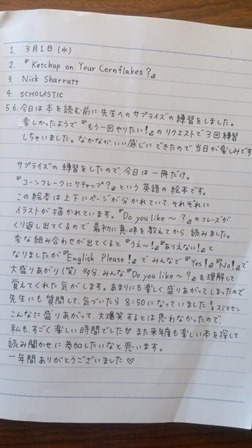 1. 3月1日(水)
2. 『Ketchup on Your Cornflakes?』
3. Nick Sharratt
4. SCHOLASTIC
5.6. 今日は本を読む前に先生へのサプライズの練習をしました。
楽しかったようで『もう一回やりたい!』のリクエストで3回練習
しちゃいました。なかなかいい感じにできたので当日が楽しみです
サプライズの練習をしたので今日は一冊だけ。
『コーンフレークにケチャップ?』という英語の絵本です。
この絵本は上下にページが分かれていて それぞれに
イラストが描かれています。『Do you like ~ ?』のフレーズが
くり返し出てくるので 最初に意味を教えてから 読みました。
変な組み合わせが出てくると『うえ~!』『ありえない!』と
なりましたが『English Please!』で みんなで『Yes!』『No!』で
大盛りあがり(笑) 多分、みんな『Do you like ~ ?』を理解して
覚えてくれた気がします。あまりにも楽しく盛りあがってしまったので
先生にも質問して、気づいたら8:50になっていました スミマセン
こんなに盛りあがって、大爆笑するとは思わなかったので、
私も、すごく楽しい時間でした♡ また来年度も楽しい本を探して
読み聞かせに参加したいなと思います。
一年間ありがとうございました♡